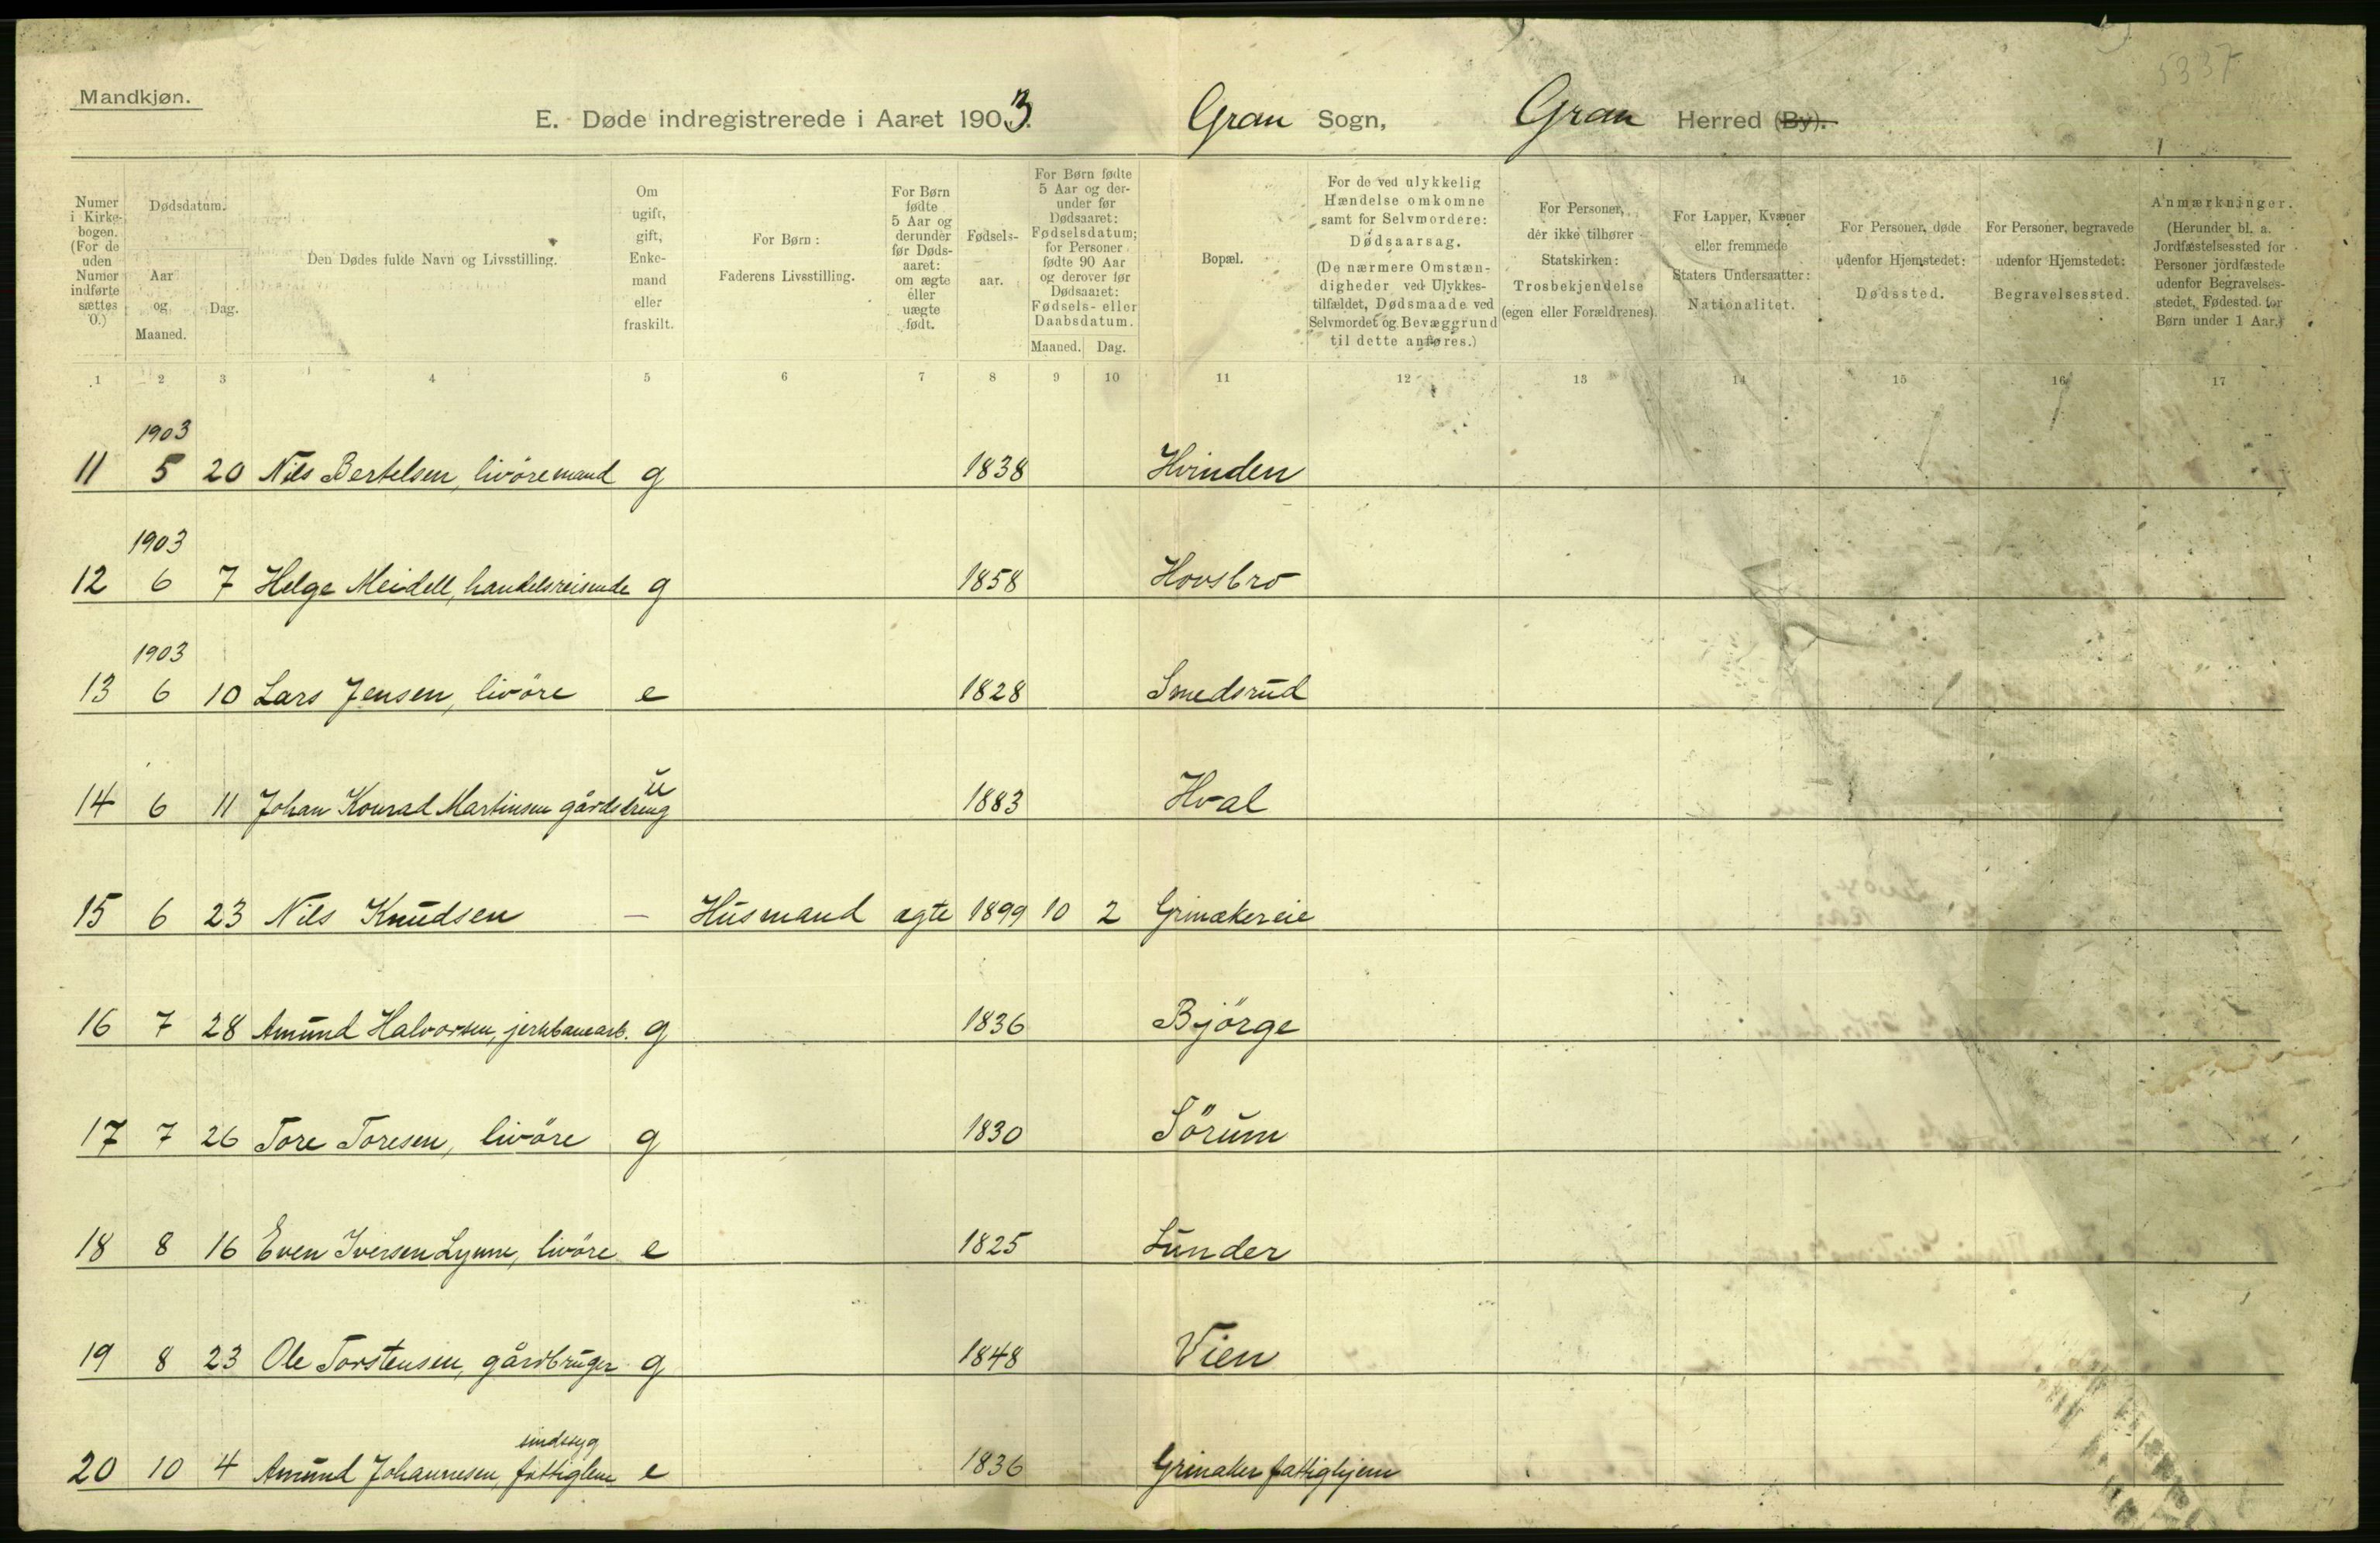 5337
Mandkjøn.
E. Døde indregistrerede i Aaret 1903. Gran Sogn, Gran Herred (By).
Numer i Kirkebogen. (For de uden Numer indførte sættes 0.)
Dødsdatum.
Aar og Maaned.
Dag.
Den Dødes fulde Navn og Livsstilling.
Om ugift, gift, Enkemand eller fraskilt.
For Børn:
Faderens Livsstilling.
For Børn fødte 5 Aar og derunder før Dødsaaret: om ægte eller uægte født.
Fødselsaar.
For Børn fødte 5 Aar og derunder før Dødsaaret: Fødselsdatum; for Personer fødte 90 Aar og derover før Dødsaaret: Fødsels- eller Daabsdatum.
Maaned. Dag.
Bopæl.
For de ved ulykkelig Hændelse omkomne samt for Selvmordere: Dødsaarsag. (De nærmere Omstændigheder ved Ulykkestilfældet, Dødsmaade ved Selvmordet og Bevæggrund til dette anføres.)
For Personer, der ikke tilhører Statskirken: Trosbekjendelse (egen eller Forældrenes).
For Lapper, Kvæner eller fremmede Staters Undersaatter: Nationalitet.
For Personer, døde udenfor Hjemstedet: Dødssted.
For Personer, begravede udenfor Hjemstedet: Begravelsessted.
Anmærkninger. (Herunder bl. a. Jordfæstelsessted for Personer jordfæstede udenfor Begravelsesstedet, Fødested for Børn under 1 Aar.)
1 2 3 4 5 6 7 8 9 10 11 12 13 14 15 16 17
1903
11 5 20 Nils Bertelsen, livöremand g 1838 Hvinden
1903
12 6 7 Helge Meidell, handelsreisende g 1858 Hovsbro
1903
13 6 10 Lars Jensen, livöre e 1828 Smedsrud
14 6 11 Johan Konrad Martinsen gårdsdreng u 1883 Hval
15 6 23 Nils Knudsen — Husmand ægte 1899 10 2 Grinakereie
16 7 28 Amund Halvorsen, jernbanearb. g 1836 Björge
17 7 26 Tore Toresen, livöre g 1830 Sörum
18 8 16 Even Iversen Lynne, livöre e 1825 Lunder
19 8 23 Ole Torstensen, gårdbruger g 1848 Vien
sindssyg
20 10 4 Amund Johannesen, fattiglem e 1836 Grinaker fattighjem